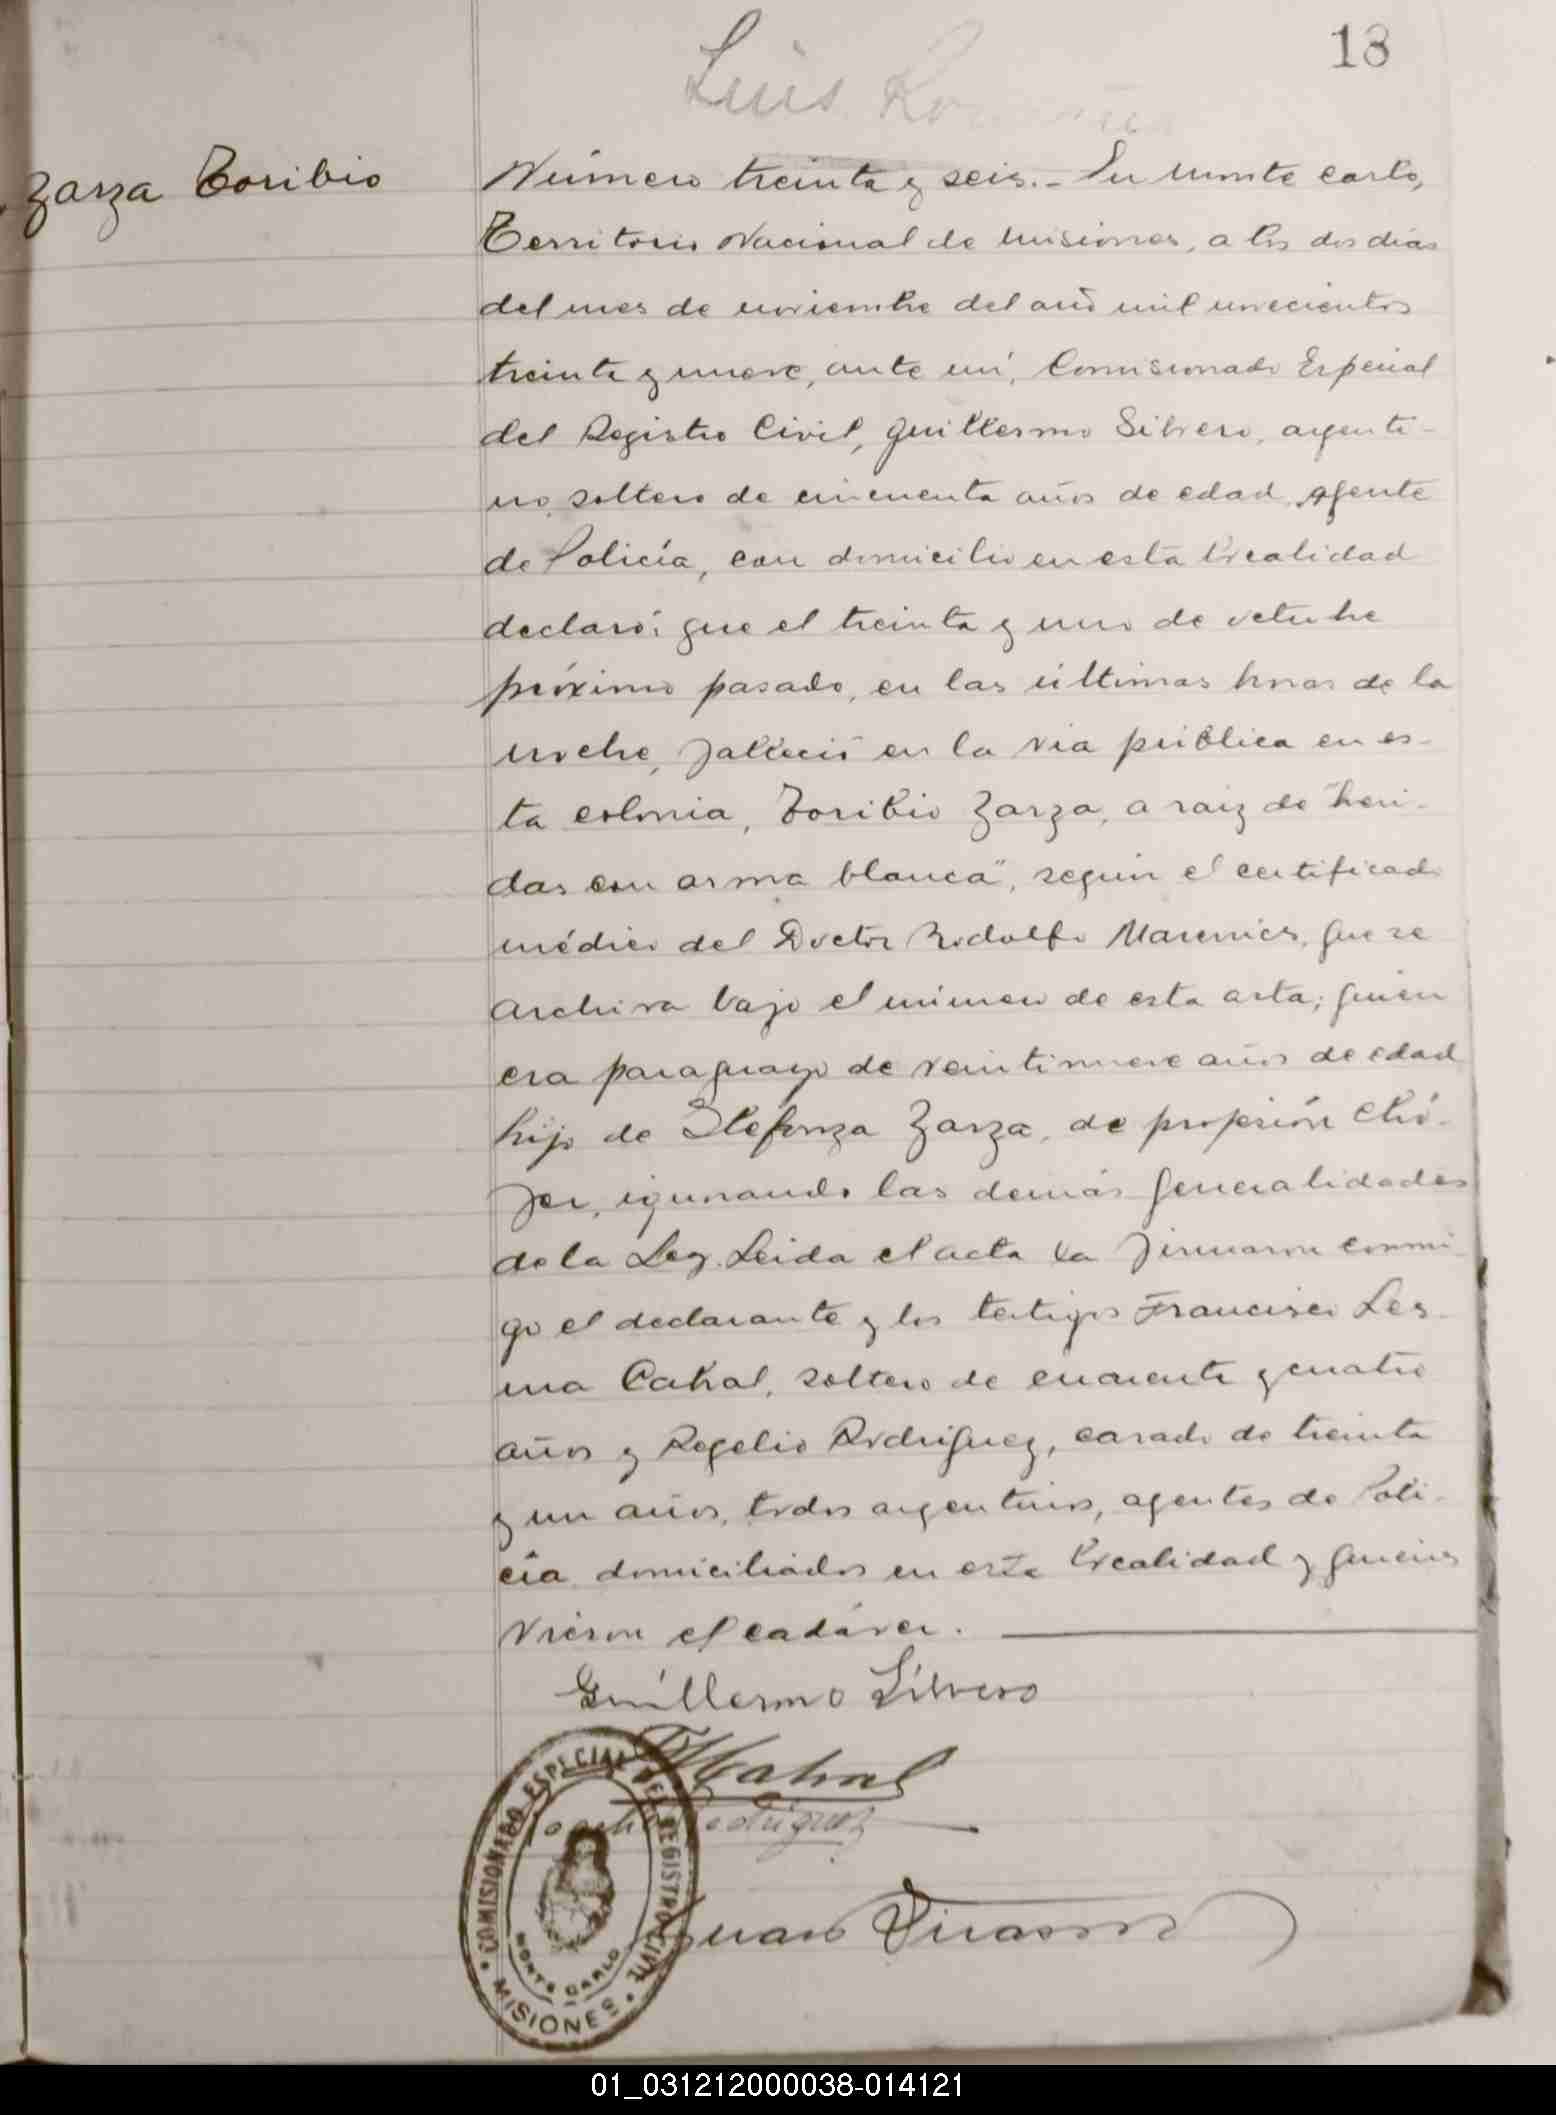 18
Luis
Zarza Toribio
Número treinta y seis.- En monte carlo,
Territorio Nacional de misiones, a los dos días
del mes de noviembre del año mil novecientos
treinta y nueve, ante mí, Comisionado Especial
del Registro Civil, Guillermo Silvero, argenti-
no, soltero de cincuenta años de edad, Agente
de Policía, con domicilio en esta localidad
declaró: que el treinta y uno de octubre
próximo pasado, en las últimas horas de la
noche, falleció en la via pública en es-
ta colonia, Toribio Zarza, a raiz de "heri-
das con arma blanca", según el certificado
médico del Doctor Rodolfo que se
archiva bajo el número de esta acta; quien
era paraguayo de veintinueve años de edad
hijo de Ilefonza Zarza, de profesión Chó-
fer, ignorando las demás generalidades
de la Ley. Leida el acta la firmaron conmi-
go el declarante y los testigos Francisco Les-
ma Cabral, soltero de cuarenta y cuatro
años y Rogelio Rodriguez, casado de treinta
y un años, todos argentinos, agentes de Poli-
cía domiciliados en esta localidad y quienes
vieron el cadáver.
Guillermo Silvero
Cabral
Rodriguez
Juan
COMISIONADO ESPECIAL DEL REGISTRO CIVIL
MONTE CARLO
• MISIONES •
01_031212000038-014121